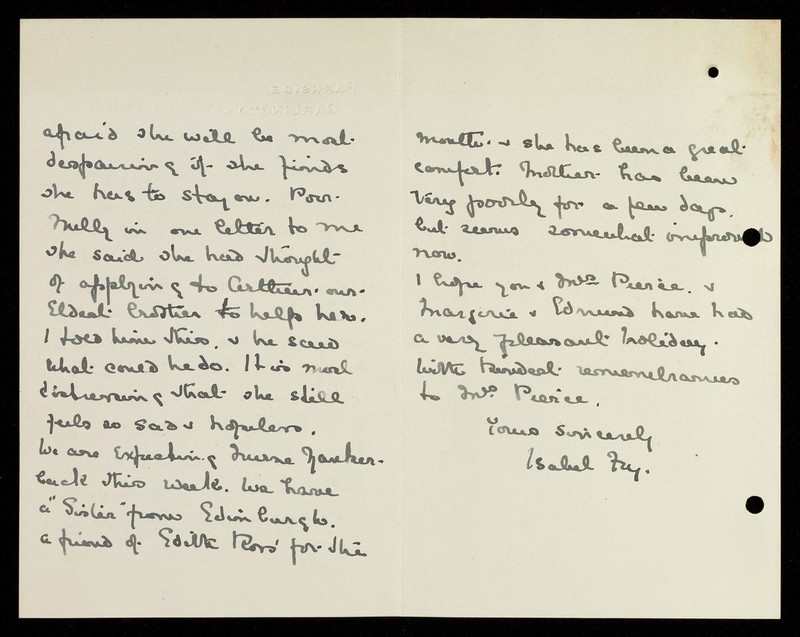 afraid she will be most
despairing if she finds
she has to stay on. Poor
Nelly in one letter to me
she said she had thought
of applying to Arthur our
Eldest brother to help her.
I told him this, & he said
what could he do. It is most
distressing that she still
feels so sad & hopeless.
We are Expecting Nurse
back this week. We have
a "Sister" from Edinburgh.
a friend of Edith Ross' for the
month. & she has been a great
comfort. Mother has been
very poorly for a few days.
but seems somewhat improved
now.
I hope you & Mrs Pierce. &
Marjorie & Edmund have had
a very pleasant holiday.
With kindest remembrances
to Mrs Pierce.
Yours sincerely
Isabel Fry.
PARKSIDE,
DARLINGTON